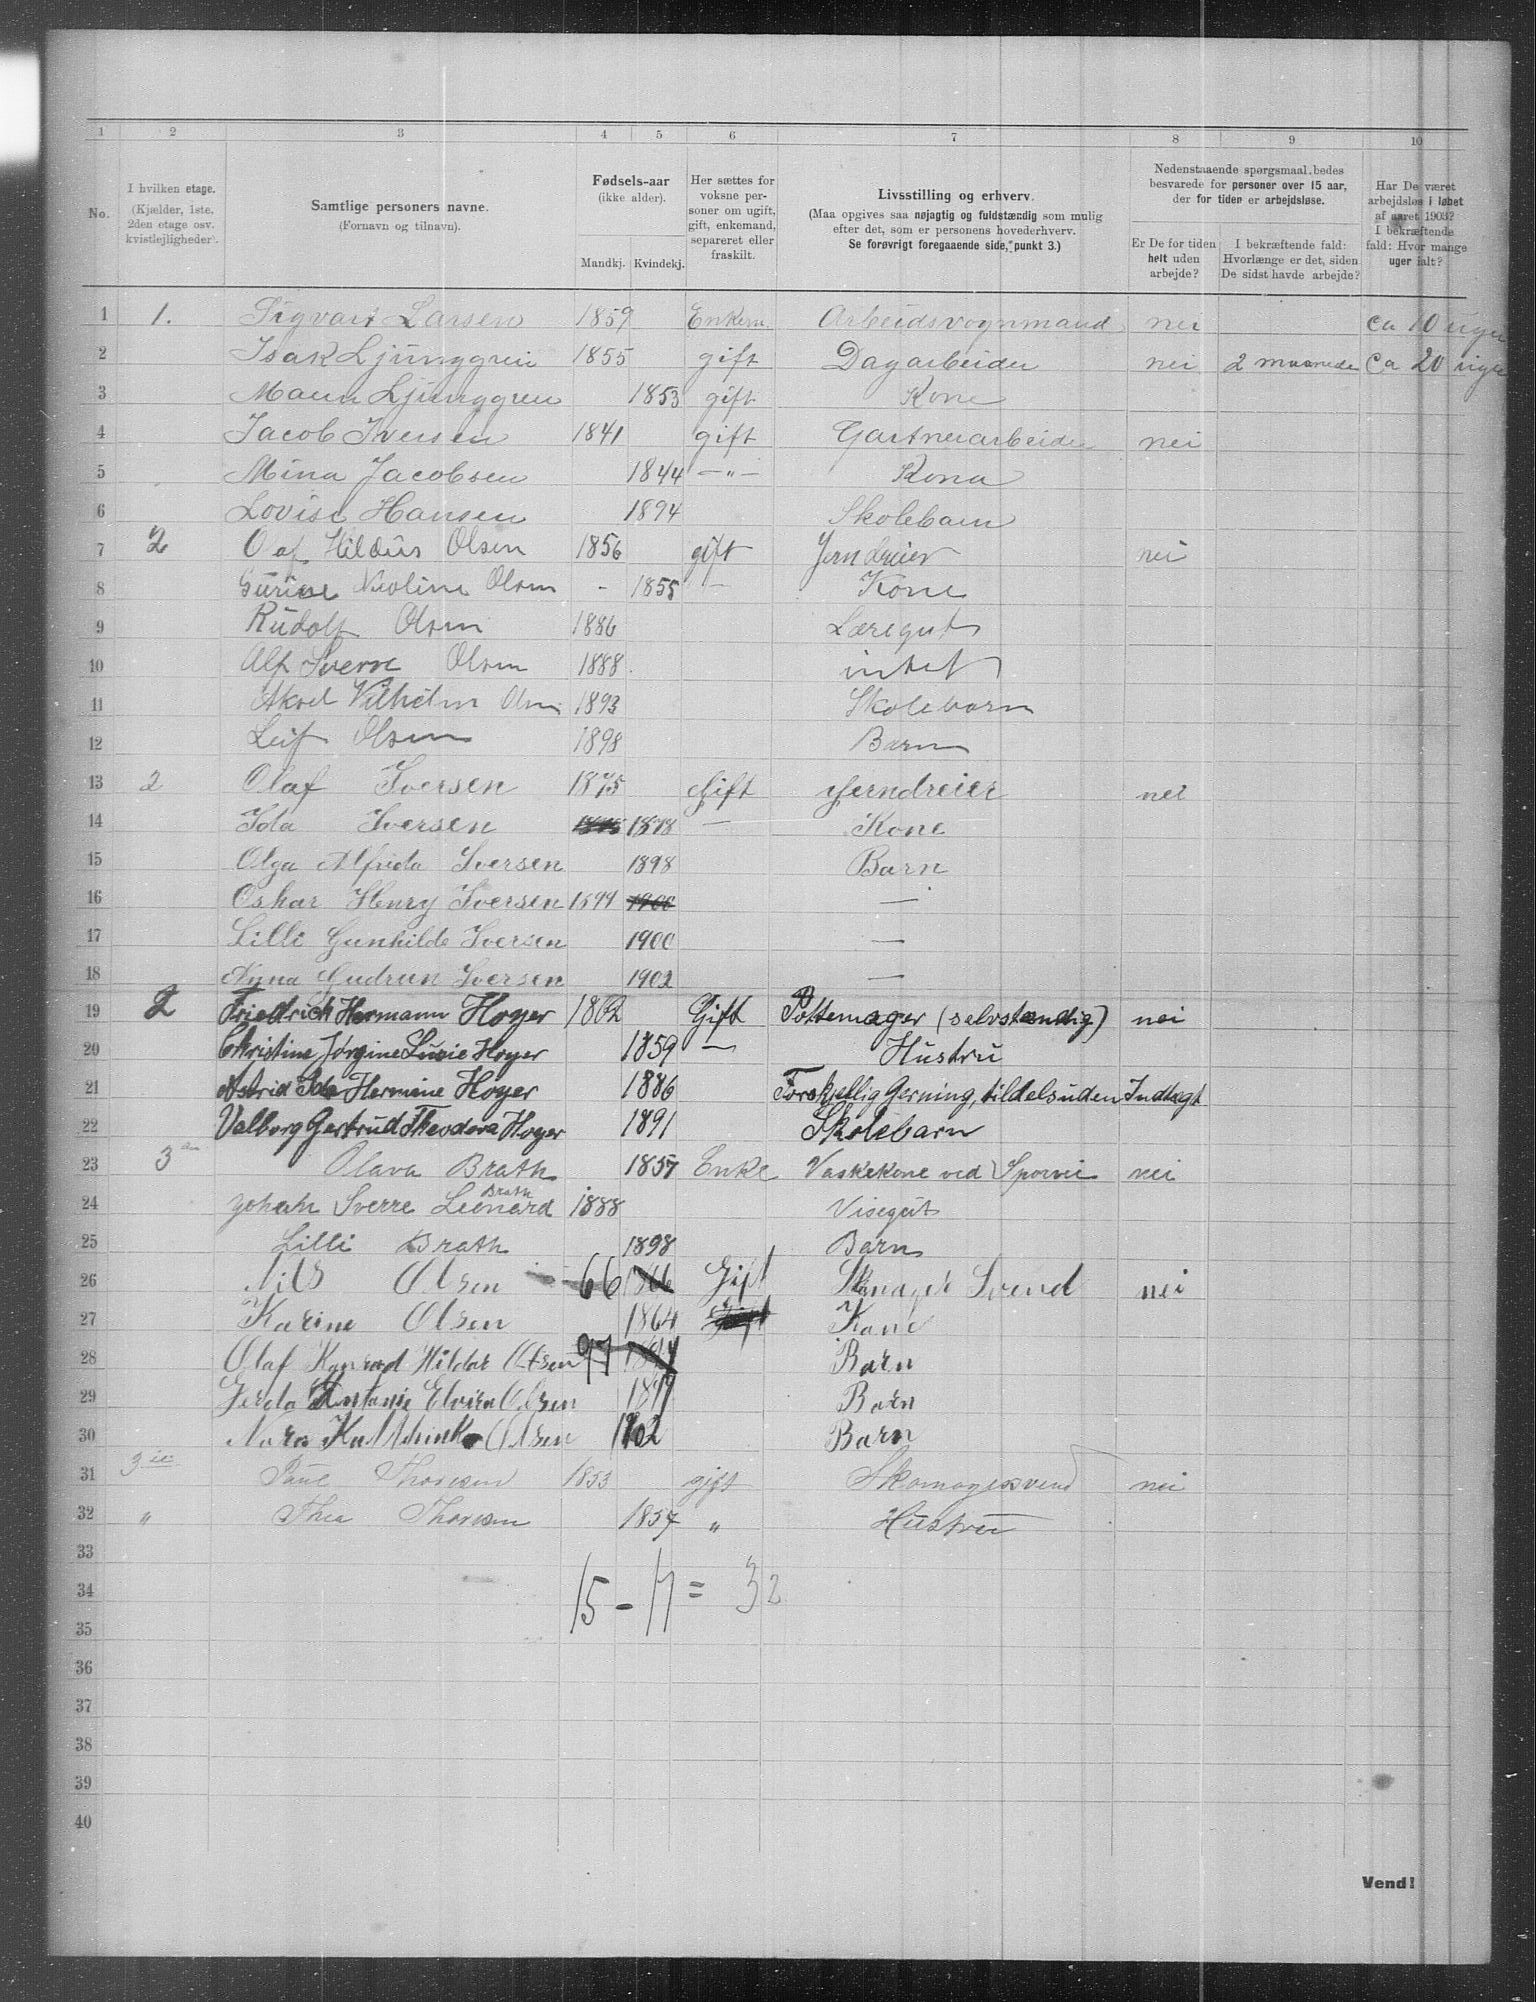 1 2 3 4 5 6 7 8 9 10
No.
I hvilken etage.
(Kjælder, 1ste, 2den etage osv. kvistlejligheder).
Samtlige personers navne.
(Fornavn og tilnavn).
Fødsels-aar
(ikke alder).
Mandkj. Kvindekj.
Her sættes for voksne personer om ugift, gift, enkemand, separeret eller fraskilt.
Livsstilling og erhverv.
(Maa opgives saa nøjagtig og fuldstændig som mulig efter det, som er personens hovederhverv. Se forøvrigt foregaaende side, punkt 3.)
Nedenstaaende spørgsmaal bedes besvarede for personer over 15 aar, der for tiden er arbejdsløse.
Er De for tiden helt uden arbejde?
I bekræftende fald: Hvorlænge er det, siden De sidst havde arbejde?
Har De været arbejdsløs i løbet af aaret 1903? I bekræftende fald: Hvor mange uger ialt?
1 1. Sigvart Larsen 1859 Enkem. Arbeidsvognmand nei ca 10 uger
2 Isak Ljunggren 1855 gift Dagarbeider nei 2 maaneder ca 20 uger
3 Ljunggren 1853 gift Kone
4 Jacob Iversen 1841 gift Gartnerarbeider nei
5 Mina Jacobsen 1844 —"— Kona
6 Lovise Hansen 1894 Skolebarn
7 2 Olaf Hildus Olsen 1856 gift Jerndreier nei
8 Nicoline Olsen - 1855 — Kone
9 Rudolf Olsen 1886 Læregut
10 Alf Sverre Olsen 1888 intet
11 Aksel Vilhelm Olsen 1893 Skolebarn
12 Leif Olsen 1898 Barn
13 2 Olaf Iversen 1875 Gift Jerndreier nei
14 Ida Iversen 1878 — Kone
15 Olga Alfrida Iversen 1898 Barn
16 Oskar Henry Iversen 1899 1900 —
17 Lilli Gunhilde Iversen 1900 —
18 Anna Gudrun Iversen 1902 —
19 2 Friedrich Hermann Hoyer 1862 Gift Pottemager (selvstændig) nei
20 Christine Jørgine Lucie Hoyer 1859 — Hustru
21 Astrid Ida Hermine Hoyer 1886 Forskjellig Gerning, tildels uden Indtægt
22 Valborg Gertrud Theodora Hoyer 1891 Skolebarn
23 3 Olava Brath 1857 Enke Vaskekone ved Sporvei nei
24 Johan Sverre Leonard Brath 1888 Visegut
25 Lilli Brath 1898 Barn
26 Nils Olsen 66 1866 Gift Skomager Svend nei
27 Karine Olsen 1864 Gift Kone
28 Olaf Konrad Hildar Olsen 97 Barn
29 Gerda Antonie Elvira Olsen Barn
30 Nora Olsen 1902 Barn
31 3 Paul Thoresen 1853 gift Skomagersvend nei
32 " Thea Thoresen 1857 " Hustru
33
34 15 - 17 = 32
35
36
37
38
39
40
Vend!